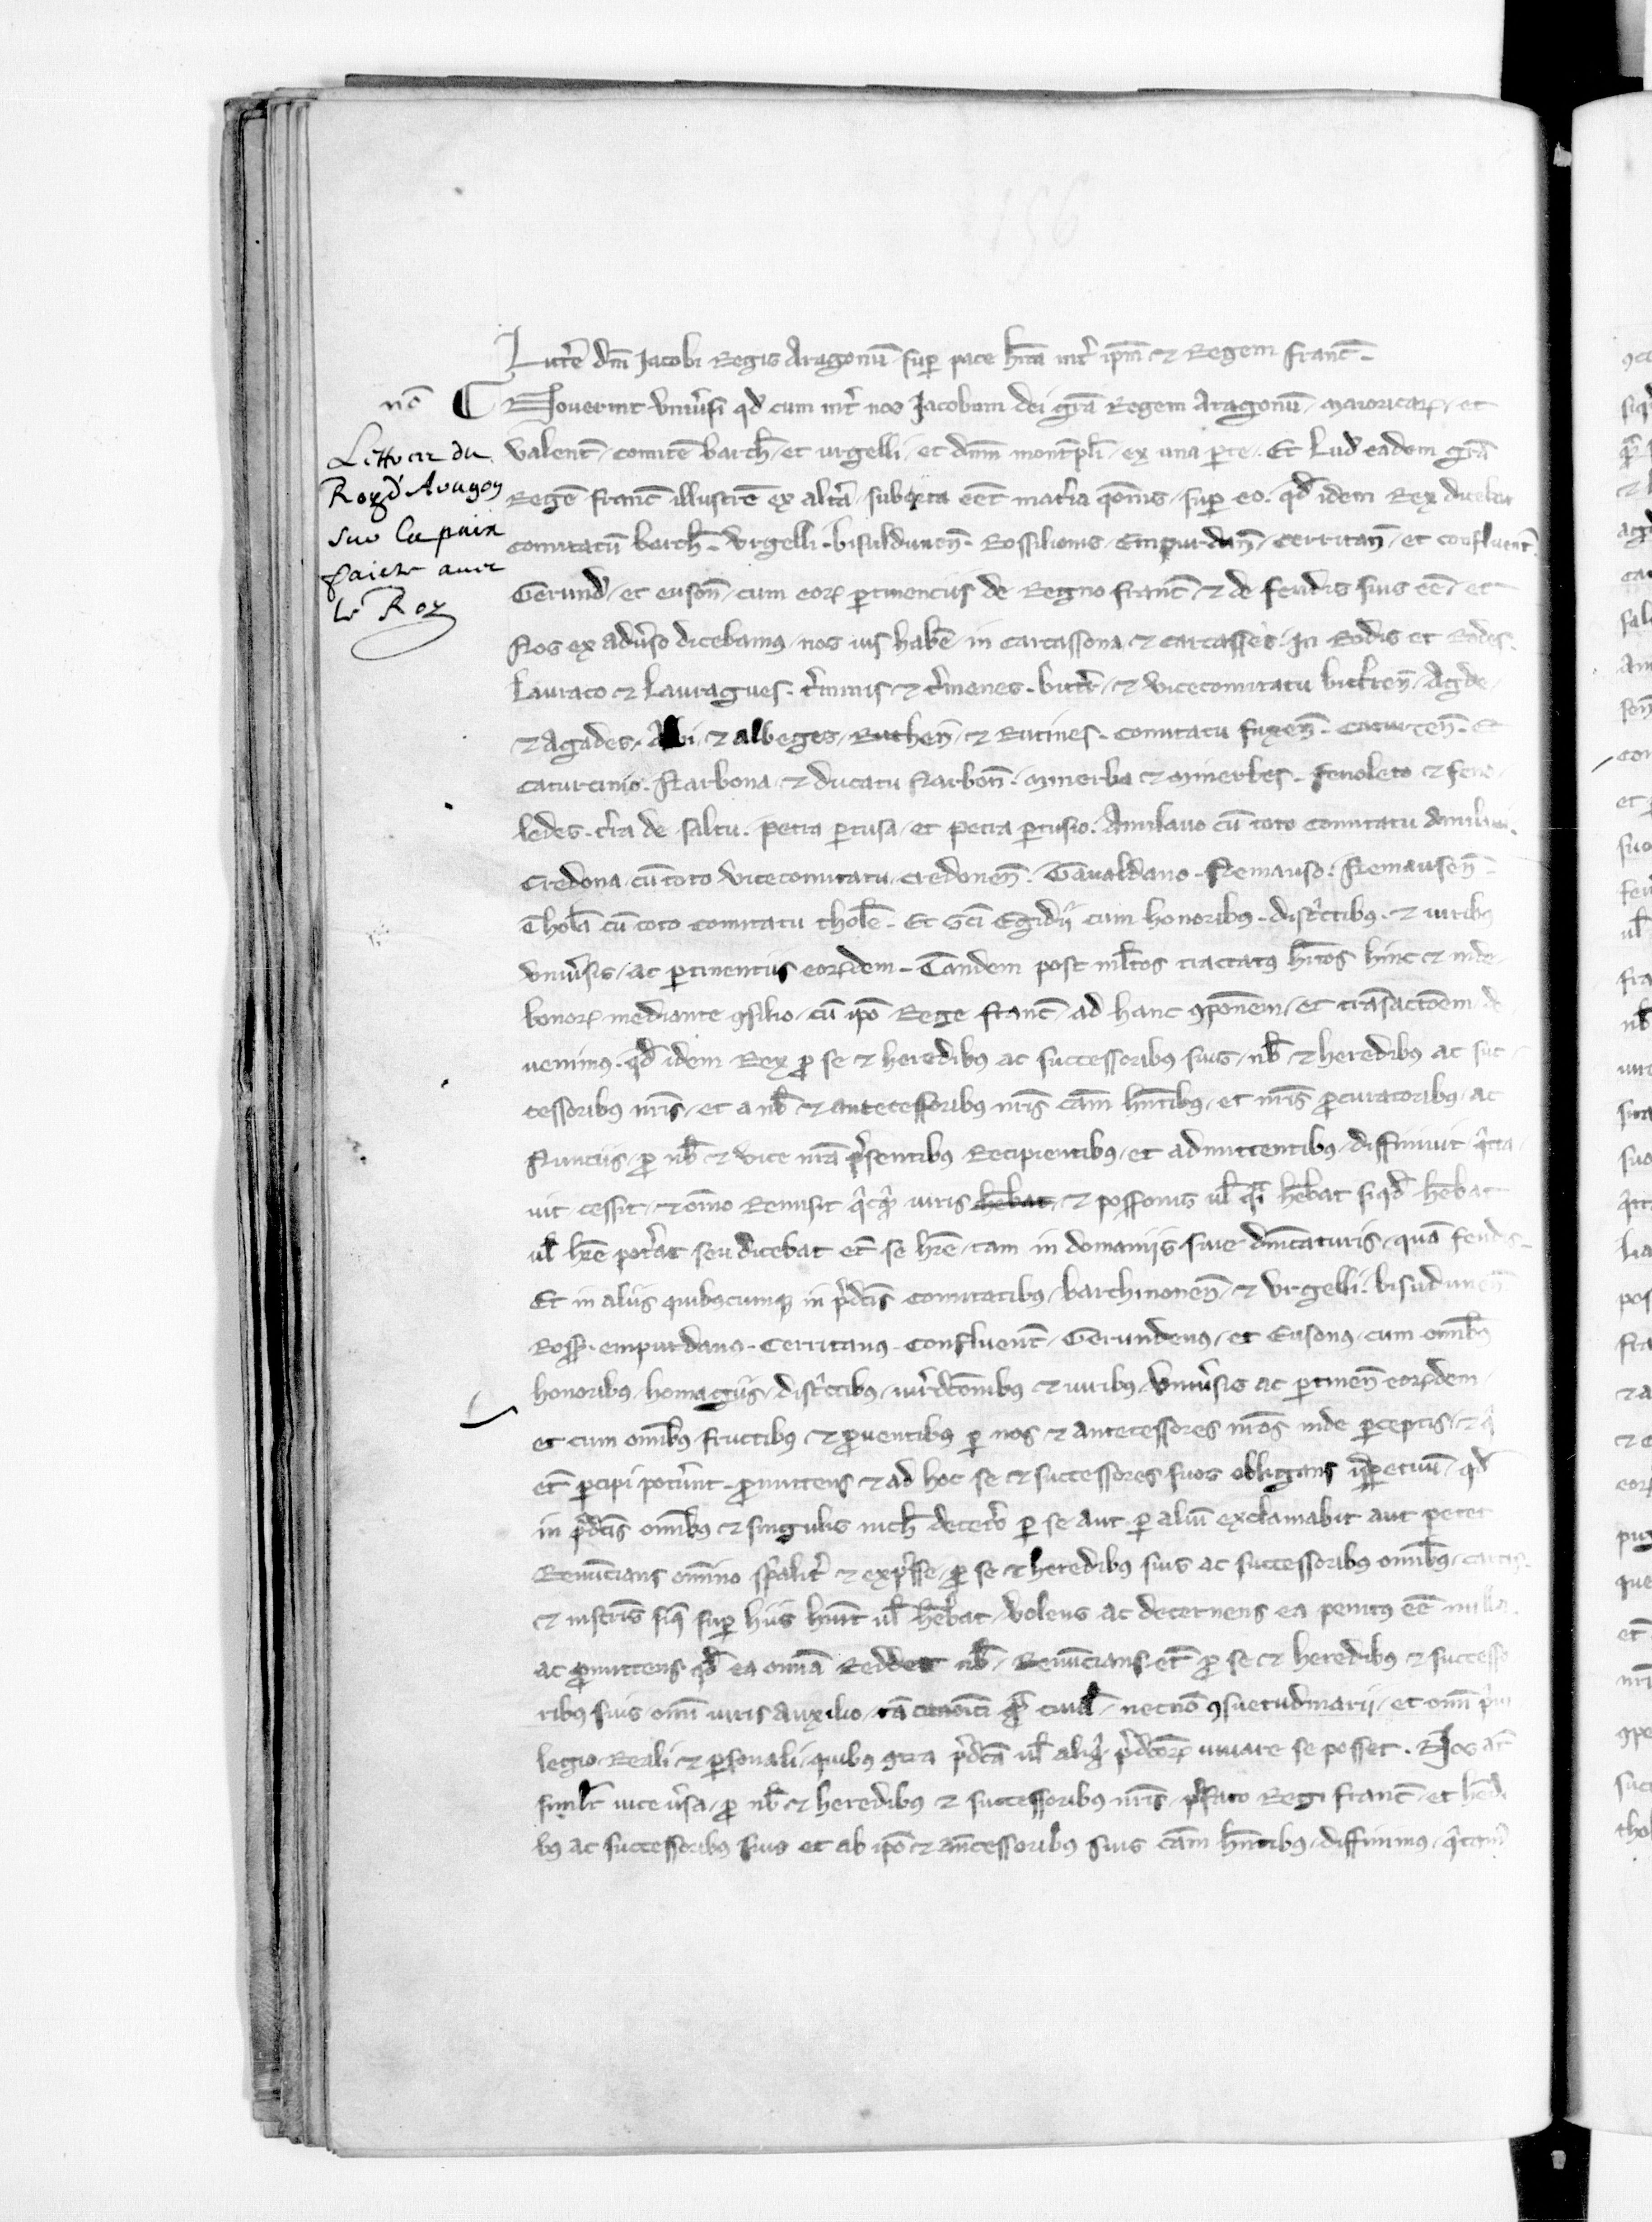 156
Littere dni Jacobi Regis Aragonū sup pace hita int ipm et Regem franc.
nō
Littere du
Roy d'Aragon
sur la paix
faicte avec
le Roy
Noverint univsi qd cum int nos Jacobum dei gra Regem Aragonū, maioricar, et
valent, comitē barch, et urgelli, et dnm montpli, ex una pte. Et Lud eadem gra
Regē franc illustrē ex altā, suborta eēt matia qōnis, sup eo. qd idem Rex dicebat
comitatū barch. Urgelli. bisuldunen. Rossilionis, Empurdan, cerritan, et confluent.
Gerund, et euson, cum eor ptinenciis de Regno franc, et de feudis suis eē, et
Nos ex advso dicebamus, nos ius habē, in carcassona, et carcasses. In Rodis et Rodes.
Lauraco et Lauragues. tminis, et tmenes. bitt, et vicecomitatu bitten, Agde,
et Agades, Albi, et albeges, Ruthen, et Rutines. comitatu fuxen. caturcen. et
caturcinio. Narbona, et ducatu Narbon. Minerba et minerbes. fenoleto et feno
ledes. tra de saltu. petra ptusa, et petra ptusio. Amilavo cū toto comitatu amiliavi.
Credona, cū toto vicecomitatu, credonen. Gavaldano. Nemauso. Nemausen.
Thola cū toto comitatu thole. Et Sci Egidii cum honoribus. districtibus, et iuribus
univsis, ac ptinentiis eordem. Tandem post mltos tractatus hitos hinc et inde
bonor mediante 9silio, cū ipo Rege franc, ad hanc 9ponem, et transactoem, de
venimus. qd idem Rex p se et heredibus ac successoribus suis, nb et heredibus ac suc
cessoribus nris, et a nb et antecessoribus nris cam hntibus, et nris pcuratoribus, ac
Nunciis, p nb et vice nra psentibus Recipientibus, et admittentibus, diffinivit qita
vit cessit, et oino Remisit qicqd iuris hebat, et possonis ul qi hebat siqd hebat
ul hre potat seu dicebat et se hre, tam in domaniis sive dnicaturis, quā feudis.
Et in aliis quibuscumq in pdcis comitatibus, barchinonen, et Urgelli. bisudunen
Ross. empurdanus. Cerritanus. Confluent, Gerundenus, et Eusonus, cum omibus
honoribus, homagiis, districtibus, iurdconibus et iuribus, univsis ac ptinen eordem,
et cum omibus fructibus, et pventibus p nos et antecessores nros inde pceptis, et q
et pcipi potunt. pmittens et ad hoc se et successores suos obligans ippetuū, qd
in pdcis omibus et singulis nich deceto p se aut p aliū exclamabit aut petet
Renuncians omino spalit et expsse, p se et heredibus suis ac successoribus omibus, cartis.
et instris siq sup hiis hnt ul hebat, volens ac decernens ea penitus eē nulla.
ac pmittens qd ea omia Reddet nb, Renuncians et p se et heredibus et successo
ribus suis, omi iuris auxilio, tā canonici q civil, necnō 9suetudinarii, et omi pivi
legio, Reali et psonali, quibus 9tra pdca ul aliq pdcor iuvare se posset. Nos at
similt vice vsa, p nb et heredibus et successoribus nris, pfato Regi franc, et hedi
bus ac successoribus suis et ab ipo et ancessoribus suis cam hntibus, diffinimus, qitam